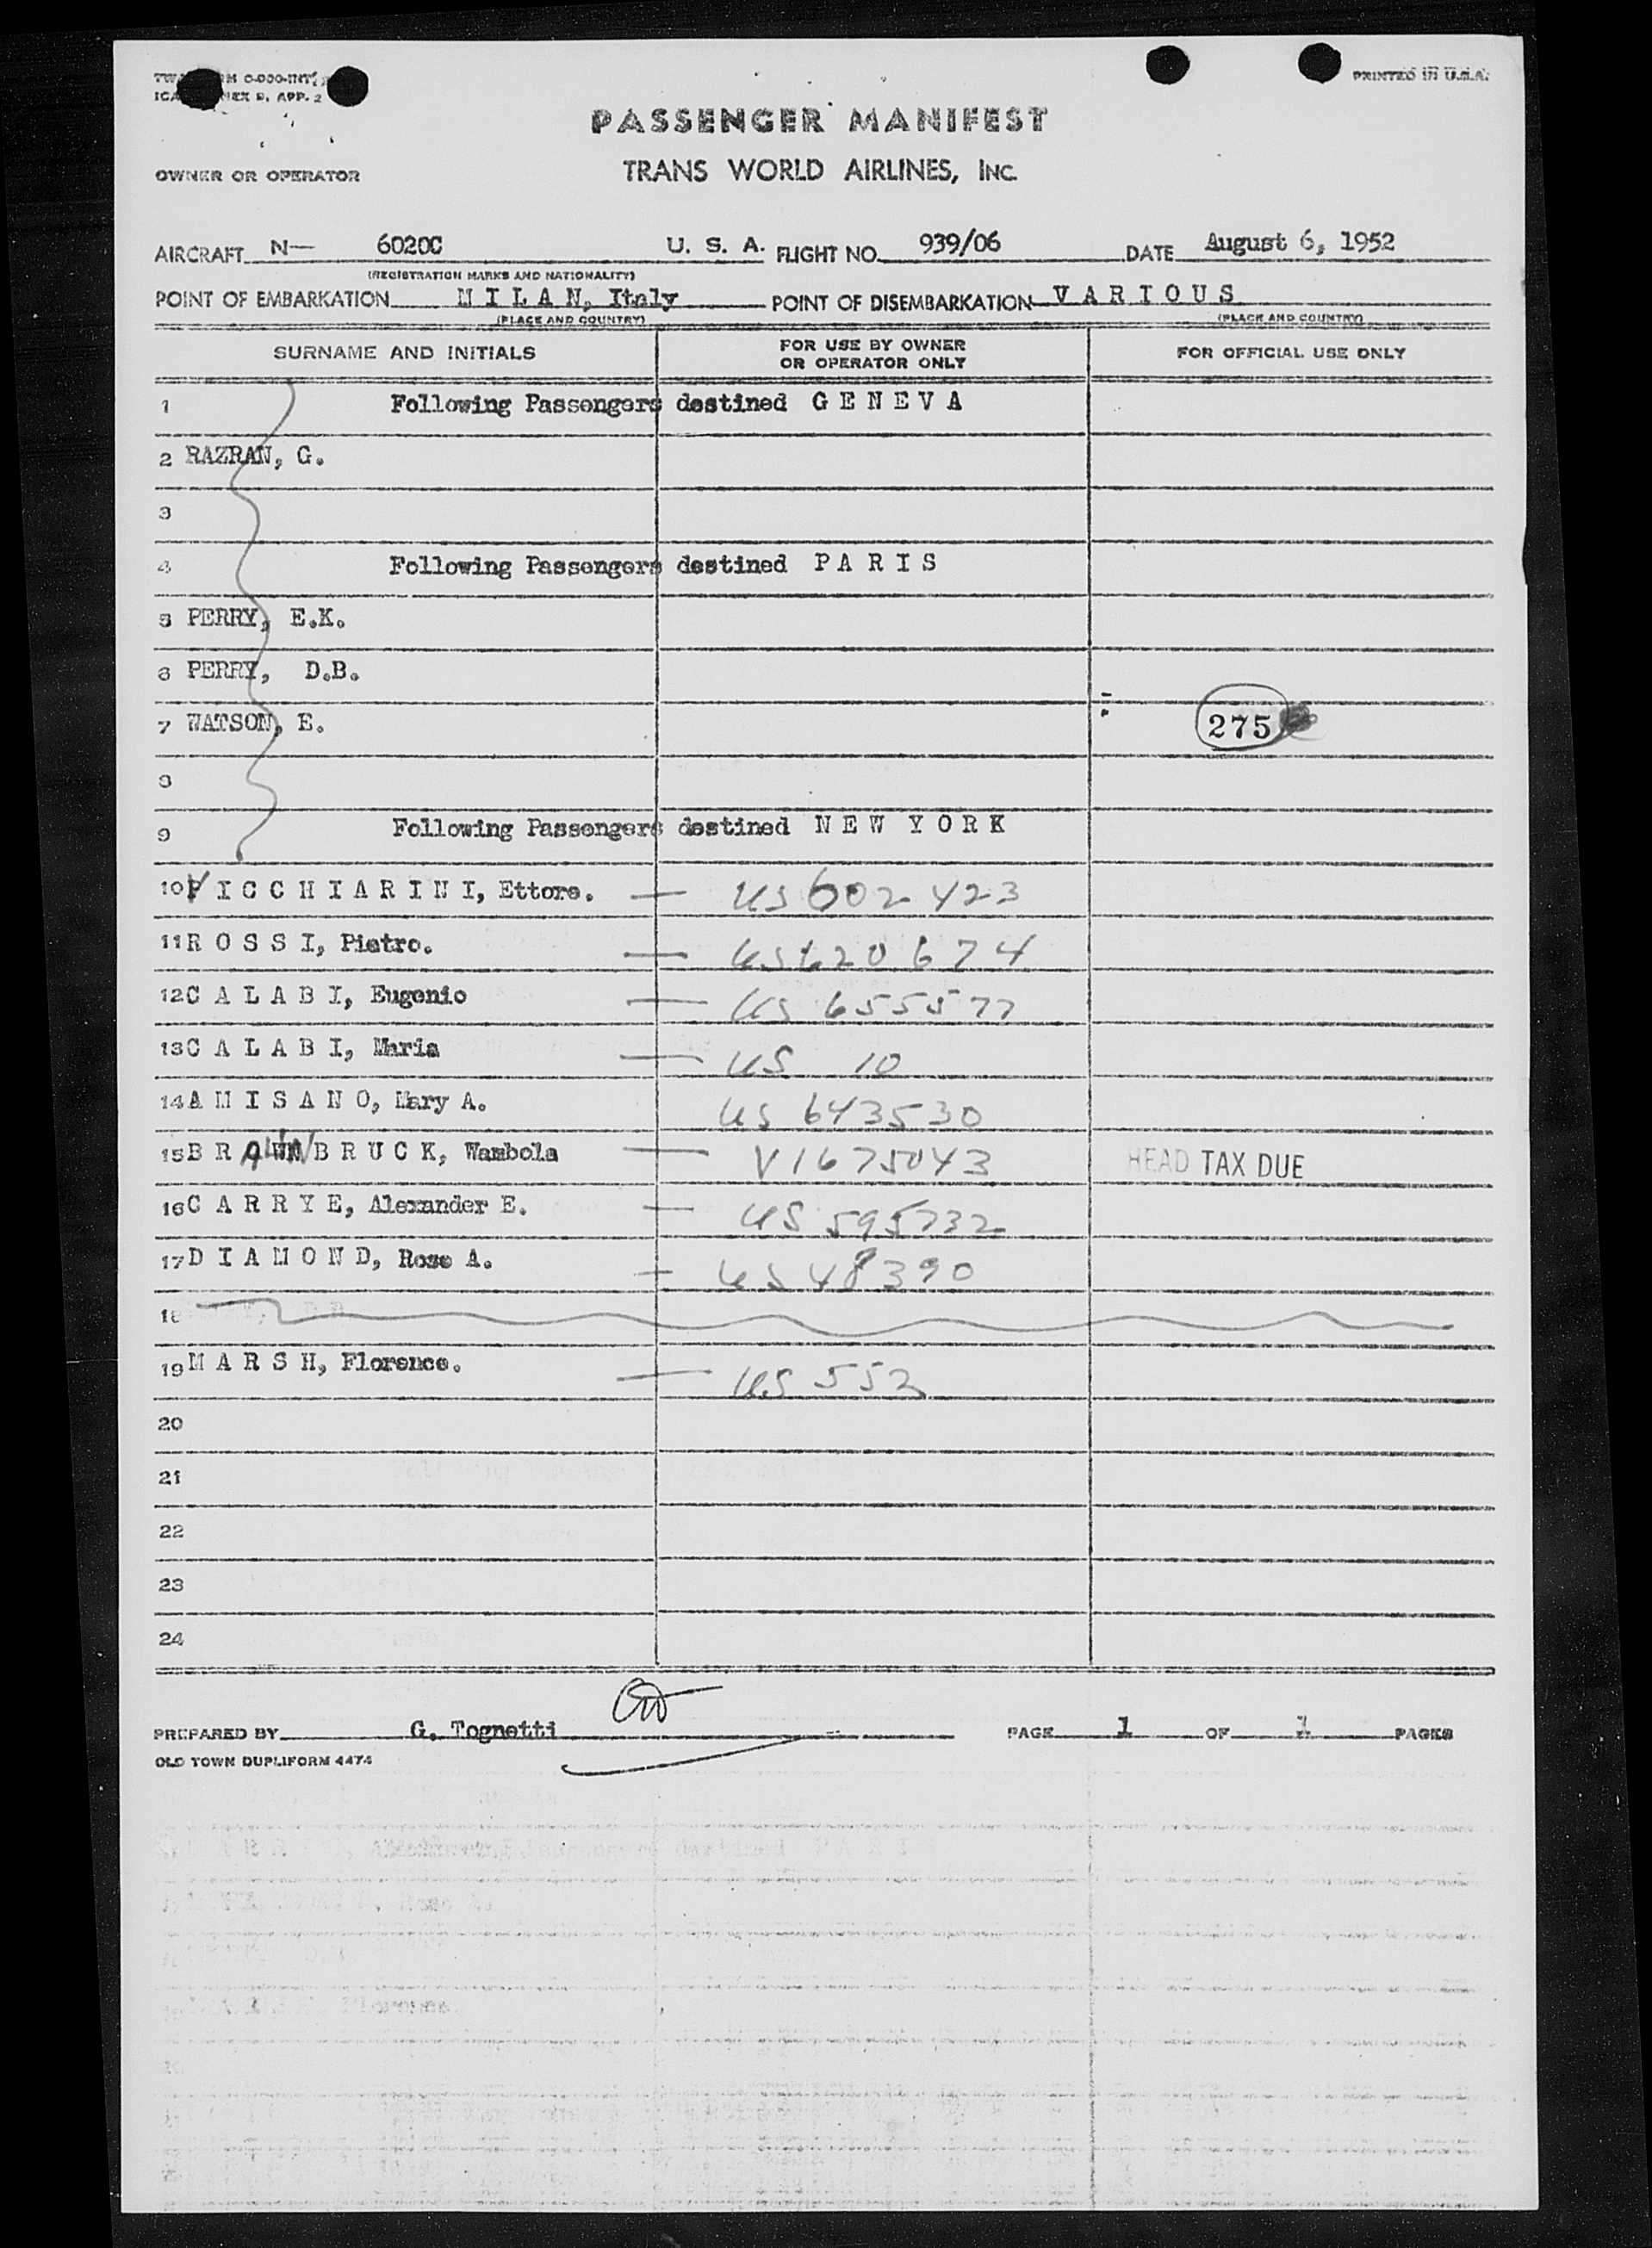 PRINTED IN U.S.A.
PASSENGER MANIFEST
TRANS WORLD AIRLINES, INC.
OWNER OR OPERATOR
AIRCRAFT N— 6020C U. S. A. FLIGHT NO. 939/06 DATE August 6, 1952
(REGISTRATION MARKS AND NATIONALITY)
POINT OF EMBARKATION M I L A N, Italy POINT OF DISEMBARKATION V A R I O U S
(PLACE AND COUNTRY) (PLACE AND COUNTRY)
SURNAME AND INITIALS FOR USE BY OWNER OR OPERATOR ONLY FOR OFFICIAL USE ONLY
1 Following Passengers destined G E N E V A
2 RAZRAN, G.
3
4 Following Passengers destined P A R I S
5 PERRY, E.K.
6 PERRY, D.B.
7 WATSON, E. 275
8
9 Following Passengers destined N E W Y O R K
10 P I C C H I A R I N I, Ettore. — US 602423
11 R O S S I, Pietro. — US 620674
12 C A L A B I, Eugenio — US 655577
13 C A L A B I, Maria — US 10
14 A M I S A N O, Mary A. US 643530
15 B R B R U C K, Wambola — V1675043 HEAD TAX DUE
16 C A R R Y E, Alexander E. — US 595732
17 D I A M O N D, Rose A. — US 48390
18
19 M A R S H, Florence. — US 553
20
21
22
23
24
PREPARED BY G. Tognetti PAGE 1 OF 1 PAGES
OLD TOWN DUPLIFORM 4474